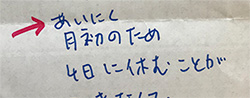 あいにく
月初のため
4日に休むことが